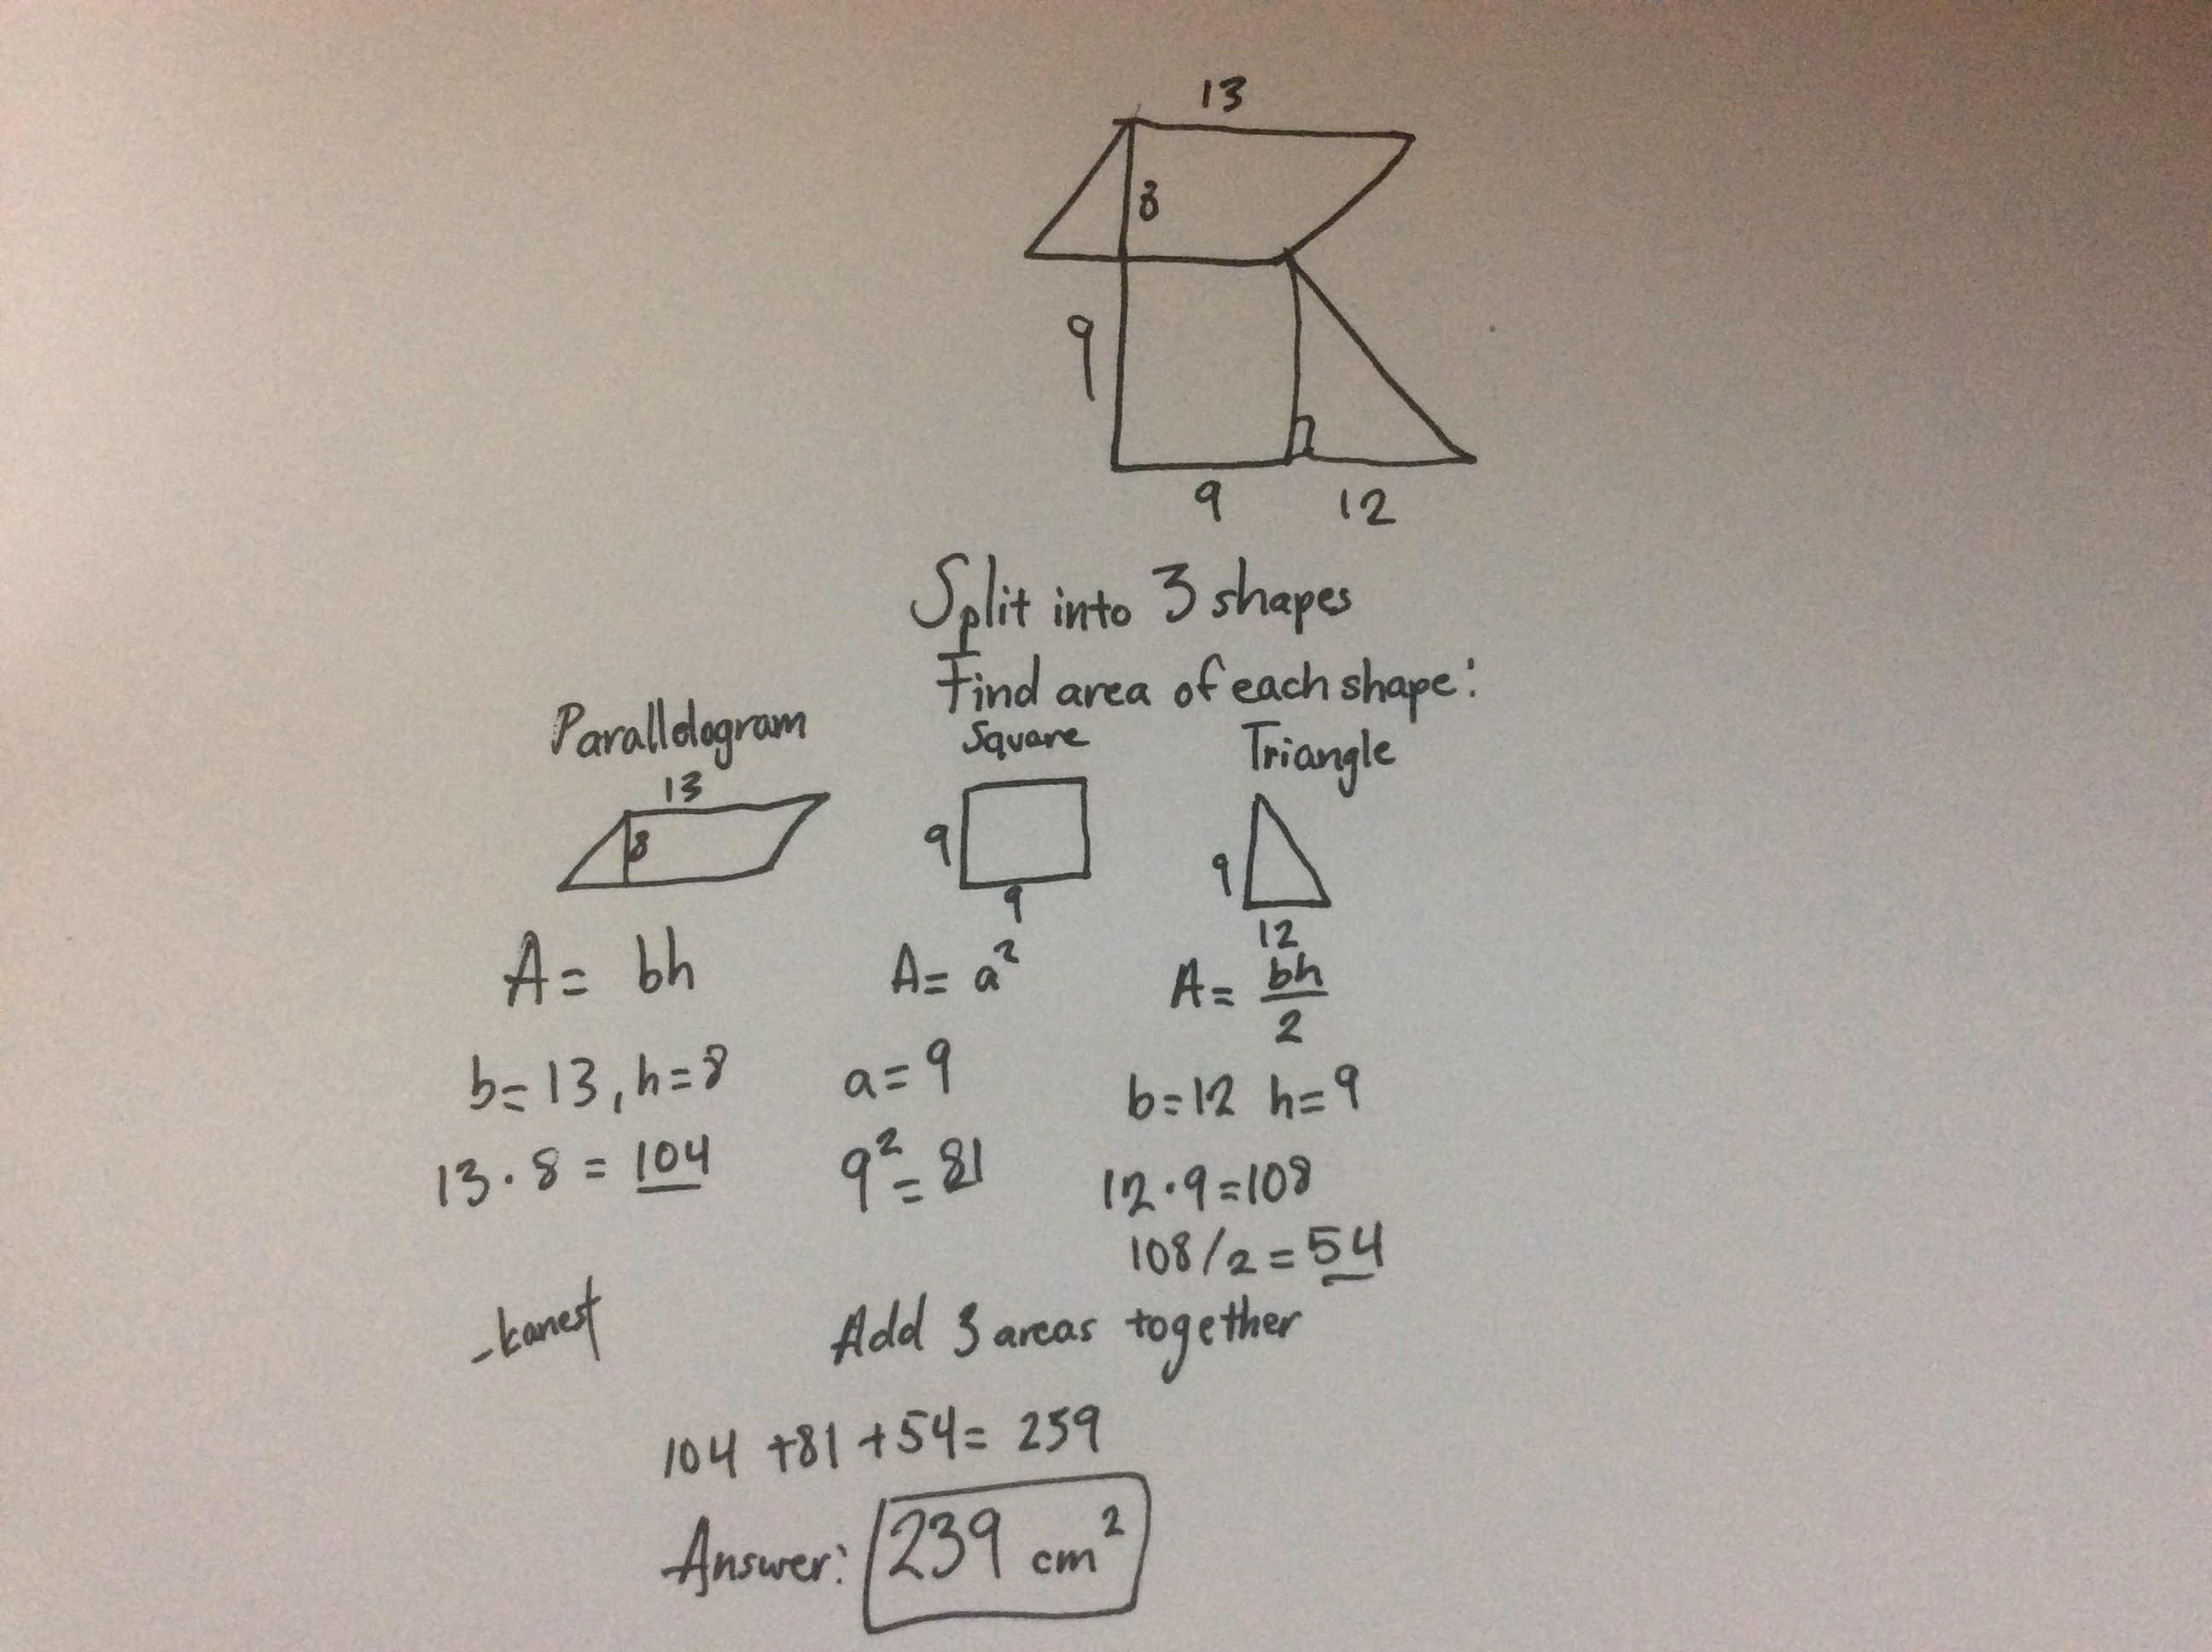 13
8
9
9 12
Split into 3 shapes
Find area of each shape:
Parallelogram Square Triangle
13
8 9 9
9 12
A = bh A = a² A = bh/2
b=13, h=8 a=9 b=12 h=9
13·8=104 9²=81 12·9=108
108/2=54
-kanest Add 3 areas together
104+81+54=239
Answer: 239 cm²